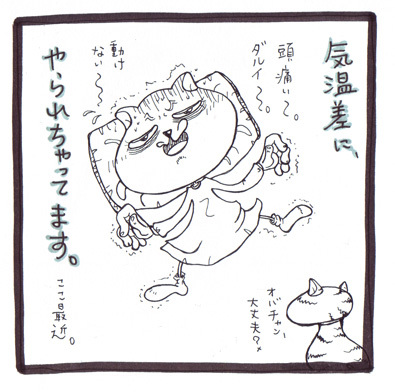 気温差に、
やられちゃってます。
ここ最近。
頭痛い〜。
ダルイ〜。
動け
ない〜
オバチャン、
大丈夫？